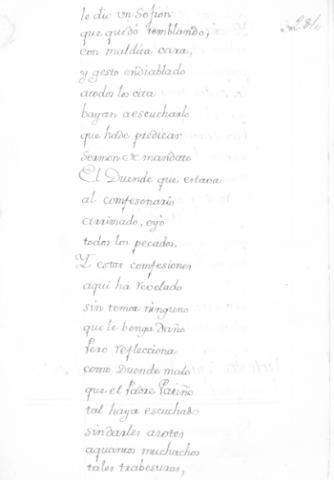 le dio un Sofion
que quedó temblando,
con maldita cara,
y gesto endiablado
atodos los cita
bayan aescucharlo
que hade predicar
Sermon de mandato
El Duende que estava
al comfesonario
arrimado, oyó
todos los pecados.
Y estas comfesiones
aqui há revelado
sin temor ninguno
que le benga daño
Pero reflecciona
como Duende malo
que el Padre Patiño
tal haya escuchado
sindarles azotes
aquantos muchachos
tales trabesuras,